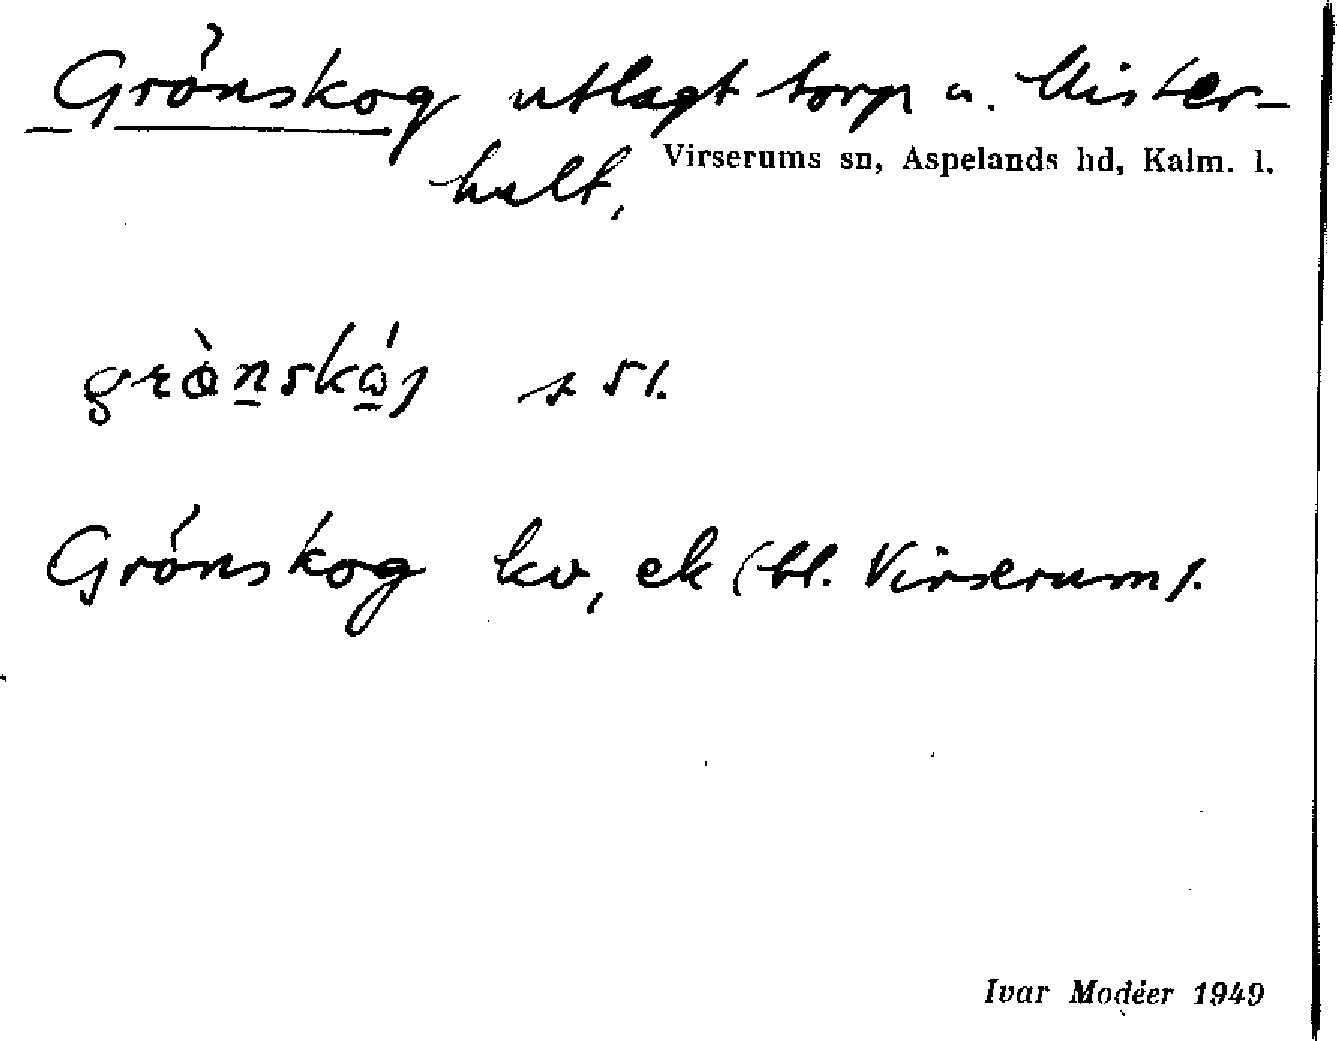 Grönskog utlagt torp u. Mister-
hult,
Virserums sn, Aspelands hd, Kalm. l.
grö̀nskó̱g s st.
Grönskog kv, ek (bl. Virserum).
Ivar Modéer 1949